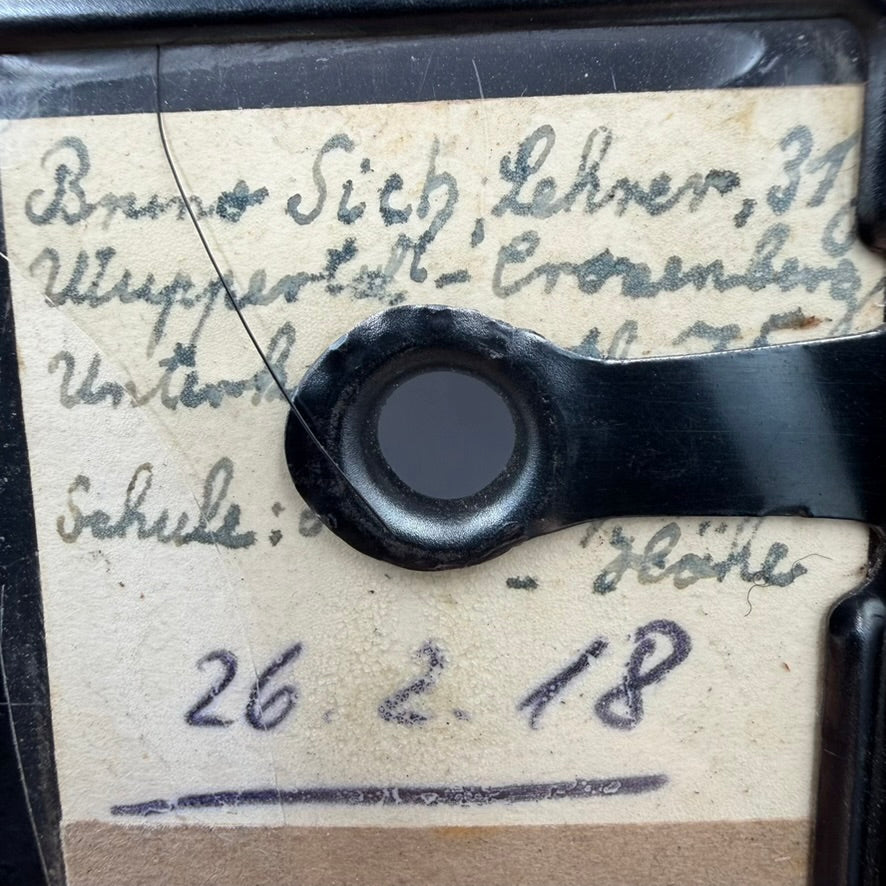 Bruno Sich, Lehrer, 31
Wuppertal - Cronenberg
Schule:
- Höhe
26. 2. 18